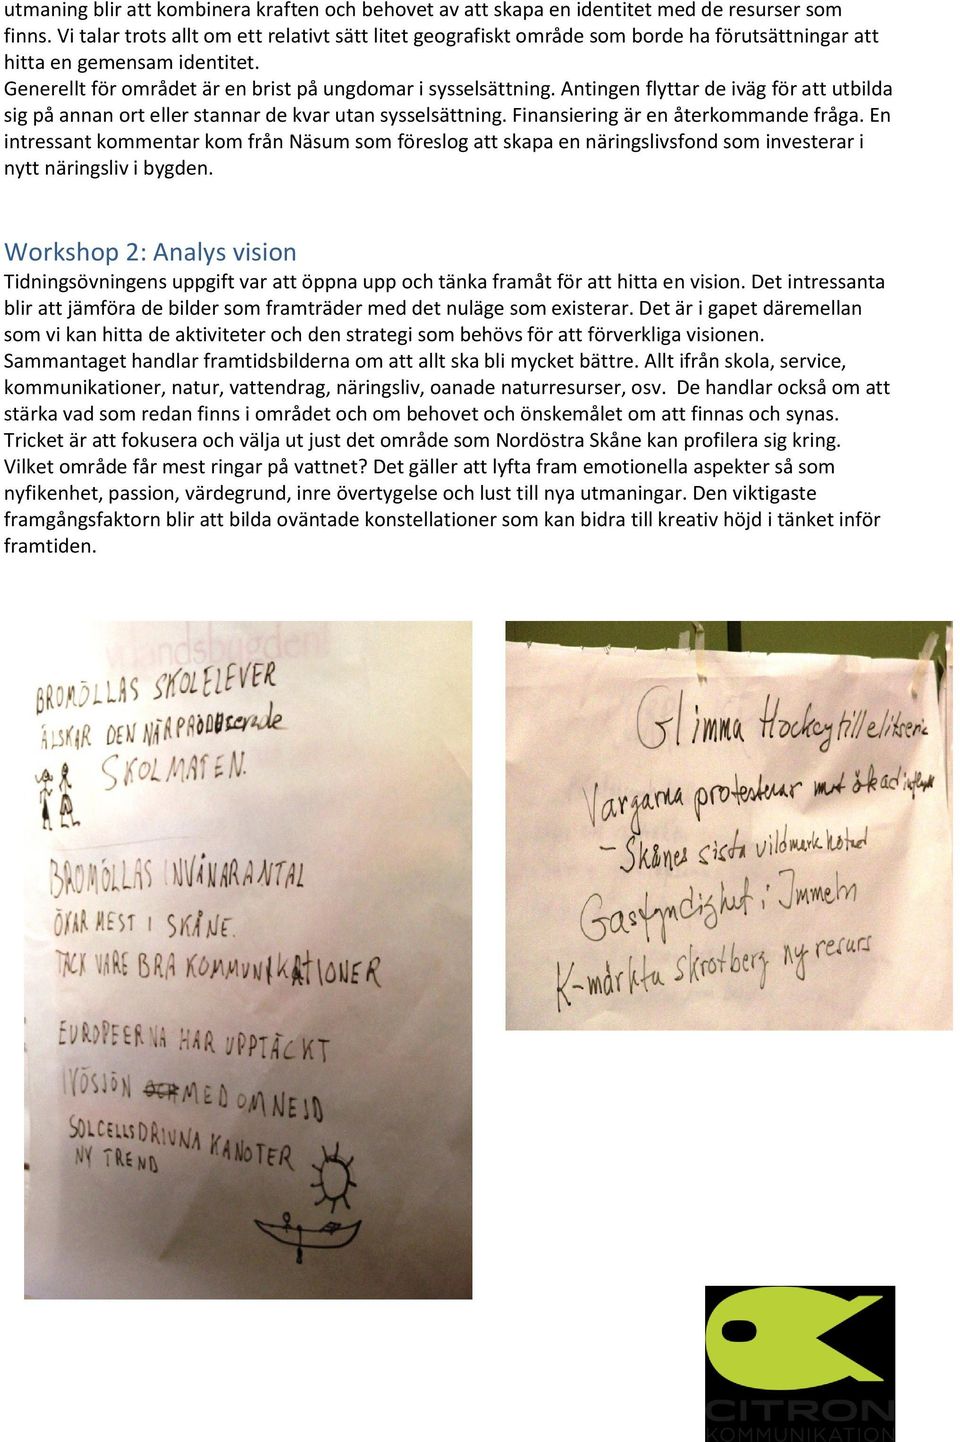 utmaning blir att kombinera kraften och behovet av att skapa en identitet med de resurser som
finns. Vi talar trots allt om ett relativt sätt litet geografiskt område som borde ha förutsättningar att
hitta en gemensam identitet.
Generellt för området är en brist på ungdomar i sysselsättning. Antingen flyttar de iväg för att utbilda
sig på annan ort eller stannar de kvar utan sysselsättning. Finansiering är en återkommande fråga. En
intressant kommentar kom från Näsum som föreslog att skapa en näringslivsfond som investerar i
nytt näringsliv i bygden.
Workshop 2: Analys vision
Tidningsövningens uppgift var att öppna upp och tänka framåt för att hitta en vision. Det intressanta
blir att jämföra de bilder som framträder med det nuläge som existerar. Det är i gapet däremellan
som vi kan hitta de aktiviteter och den strategi som behövs för att förverkliga visionen.
Sammantaget handlar framtidsbilderna om att allt ska bli mycket bättre. Allt ifrån skola, service,
kommunikationer, natur, vattendrag, näringsliv, oanade naturresurser, osv. De handlar också om att
stärka vad som redan finns i området och om behovet och önskemålet om att finnas och synas.
Tricket är att fokusera och välja ut just det område som Nordöstra Skåne kan profilera sig kring.
Vilket område får mest ringar på vattnet? Det gäller att lyfta fram emotionella aspekter så som
nyfikenhet, passion, värdegrund, inre övertygelse och lust till nya utmaningar. Den viktigaste
framgångsfaktorn blir att bilda oväntade konstellationer som kan bidra till kreativ höjd i tänket inför
framtiden.
BROMÖLLAS SKOLELEVER
ÄLSKAR DEN NÄRPRODUserade
SKOLMATEN.
BROMÖLLAS INVÅNARANTAL
ÖKAR MEST I SKÅNE.
TACK VARE BRA KOMMUNIKATIONER
EUROPEERNA HAR UPPTÄCKT
IVÖSJÖN OCH MED OMNEJD
SOLCELLSDRIVNA KANOTER
NY TREND
Glimma Hockey till elitserie
Vargarna protesterar mot ökad
- Skånes sista vildmark hotad
Gastyndighet i Immeln
K-märkta skrotberg ny resurs
CITRON
KOMMUNIKATION